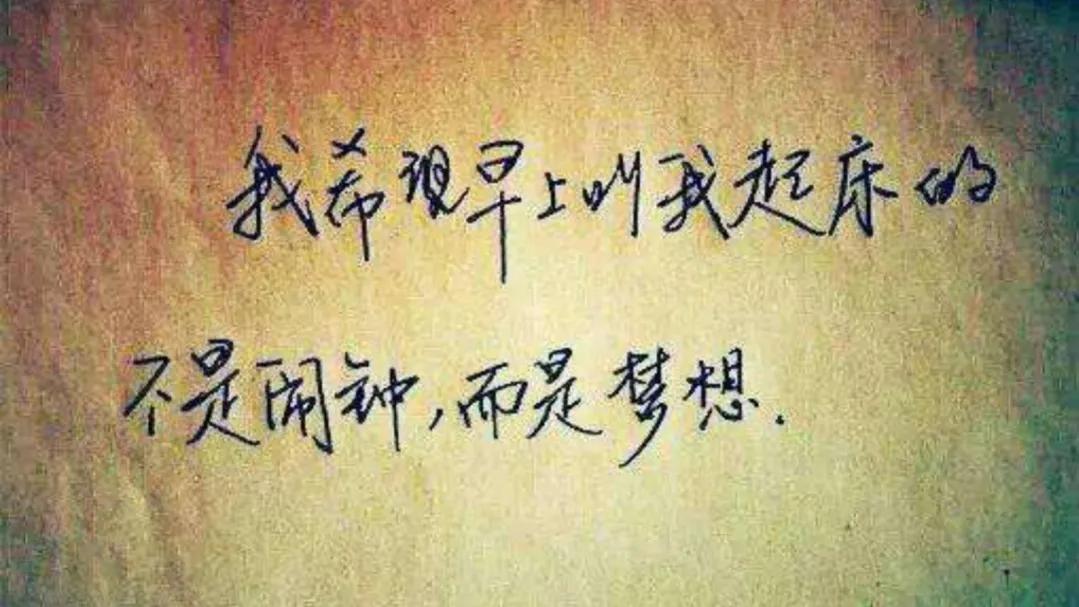 我希现早上叫我起床的
不是闹钟，而是梦想.